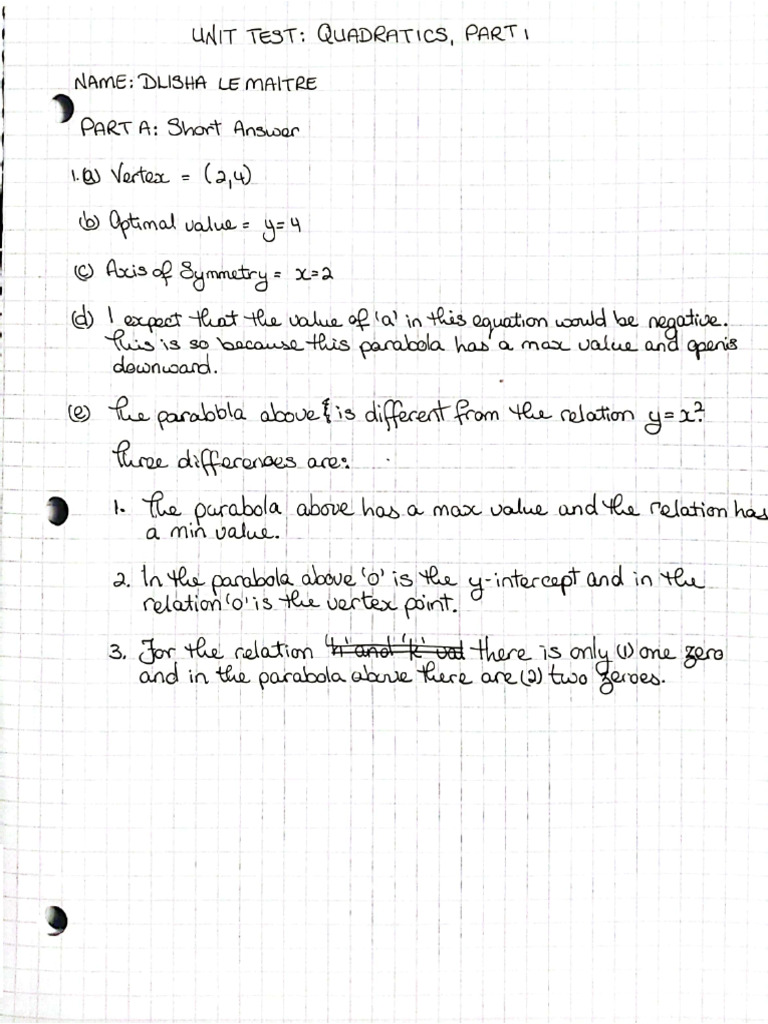 UNIT TEST: QUADRATICS, PART 1
NAME: DLISHA LE MAITRE
PART A: Short Answer
1.(a) Vertex = (2,4)
(b) Optimal value = y=4
(c) Axis of Symmetry = x=2
(d) I expect that the value of 'a' in this equation would be negative.
This is so because this parabola has a max value and opens
downward.
(e) The parabola above is different from the relation y=x².
Three differences are:
1. The parabola above has a max value and the relation has
a min value.
2. In the parabola above 'o' is the y-intercept and in the
relation 'o' is the vertex point.
3. For the relation 'h' and 'k' val there is only (1) one zero
and in the parabola above there are (2) two zeroes.